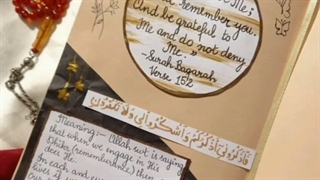 remember you.
And be grateful to
Me and do not deny
Me.
- Surah Baqarah
Verse 152
فَاذْكُرُونِي أَذْكُرْكُمْ وَاشْكُرُوا لِي وَلَا تَكْفُرُونِ
Meaning:- Allah swt is saying
that when we engage in His
Dhikr (remembrance) then
does He.
In each and
lives if